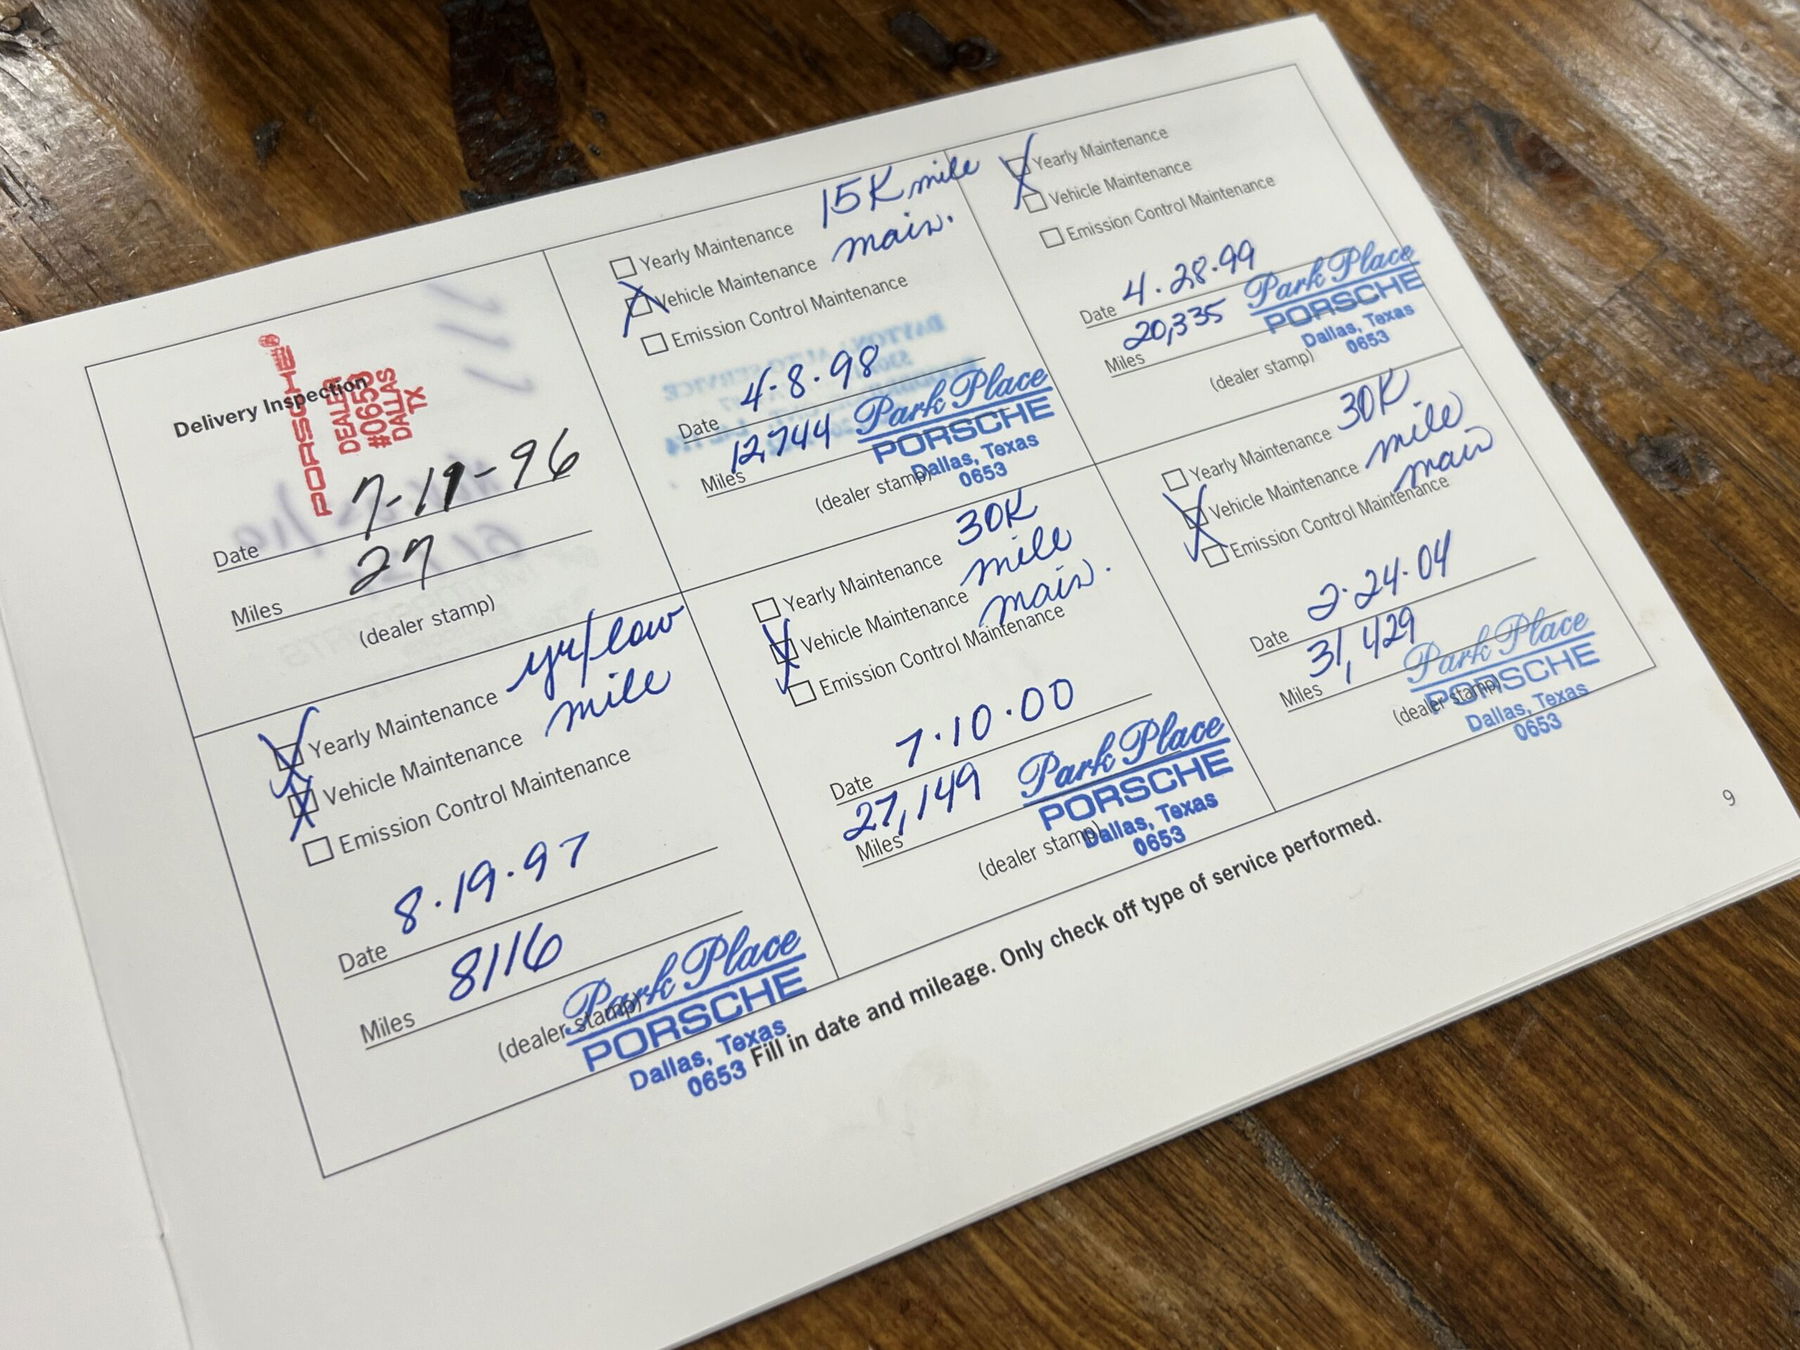 Delivery Inspection
PORSCHE®
DEALER
#0653
DALLAS
TX
Date 7-19-96
Miles 27
(dealer stamp)
Yearly Maintenance yr/low
Vehicle Maintenance mile
Emission Control Maintenance
Date 8.19.97
Miles 8116
(dealer stamp)
Park Place
PORSCHE
Dallas, Texas
0653
Yearly Maintenance 15K mile
Vehicle Maintenance main.
Emission Control Maintenance
Date 4.8.98
Miles 12,744
(dealer stamp)
Park Place
PORSCHE
Dallas, Texas
0653
Yearly Maintenance 30K
Vehicle Maintenance mile
Emission Control Maintenance main.
Date 7.10.00
Miles 27,149
(dealer stamp)
Park Place
PORSCHE
Dallas, Texas
0653
Yearly Maintenance
Vehicle Maintenance
Emission Control Maintenance
Date 4.28.99
Miles 20,335
(dealer stamp)
Park Place
PORSCHE
Dallas, Texas
0653
Yearly Maintenance 30K
Vehicle Maintenance mile
Emission Control Maintenance main
Date 2.24.04
Miles 31,429
(dealer stamp)
Park Place
PORSCHE
Dallas, Texas
0653
Fill in date and mileage. Only check off type of service performed.
9